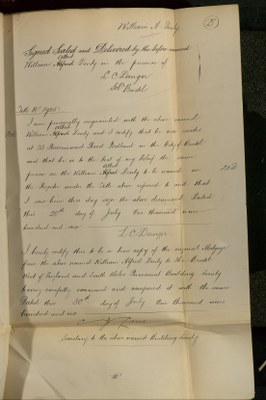 William A. Finly
(5)
Signed Sealed and Delivered by the before named
Albert
William Alfred in the presence of
L C Danger
Sol. Bristol
Title No
I am personally acquainted with the above named
Albert
William Alfred and I certify that he now resides
at 33 Road in the City of Bristol
and that he is to the best of my belief the same
Albert
person as the William Alfred named in
the Register under the Title above referred to and that
I saw him this day sign the above document Dated
this 20th day of July One thousand nine
hundred and six
L C Danger
I hereby certify this to be a true copy of the original Mortgage
from the above named William Alfred to the Bristol
West of England and South Wales Permanent Building Society
having carefully examined and compared it with the same
Dated this 30th day of July One thousand nine
hundred and six
Secretary to the above named Building Society